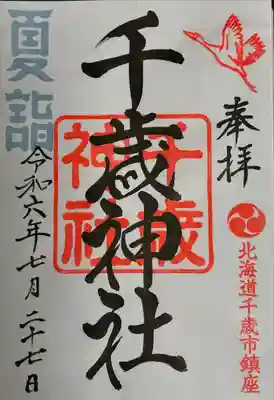 奉拝
北海道千歳市鎮座
千歳神社
千歳神社
夏詣
令和六年七月二十七日